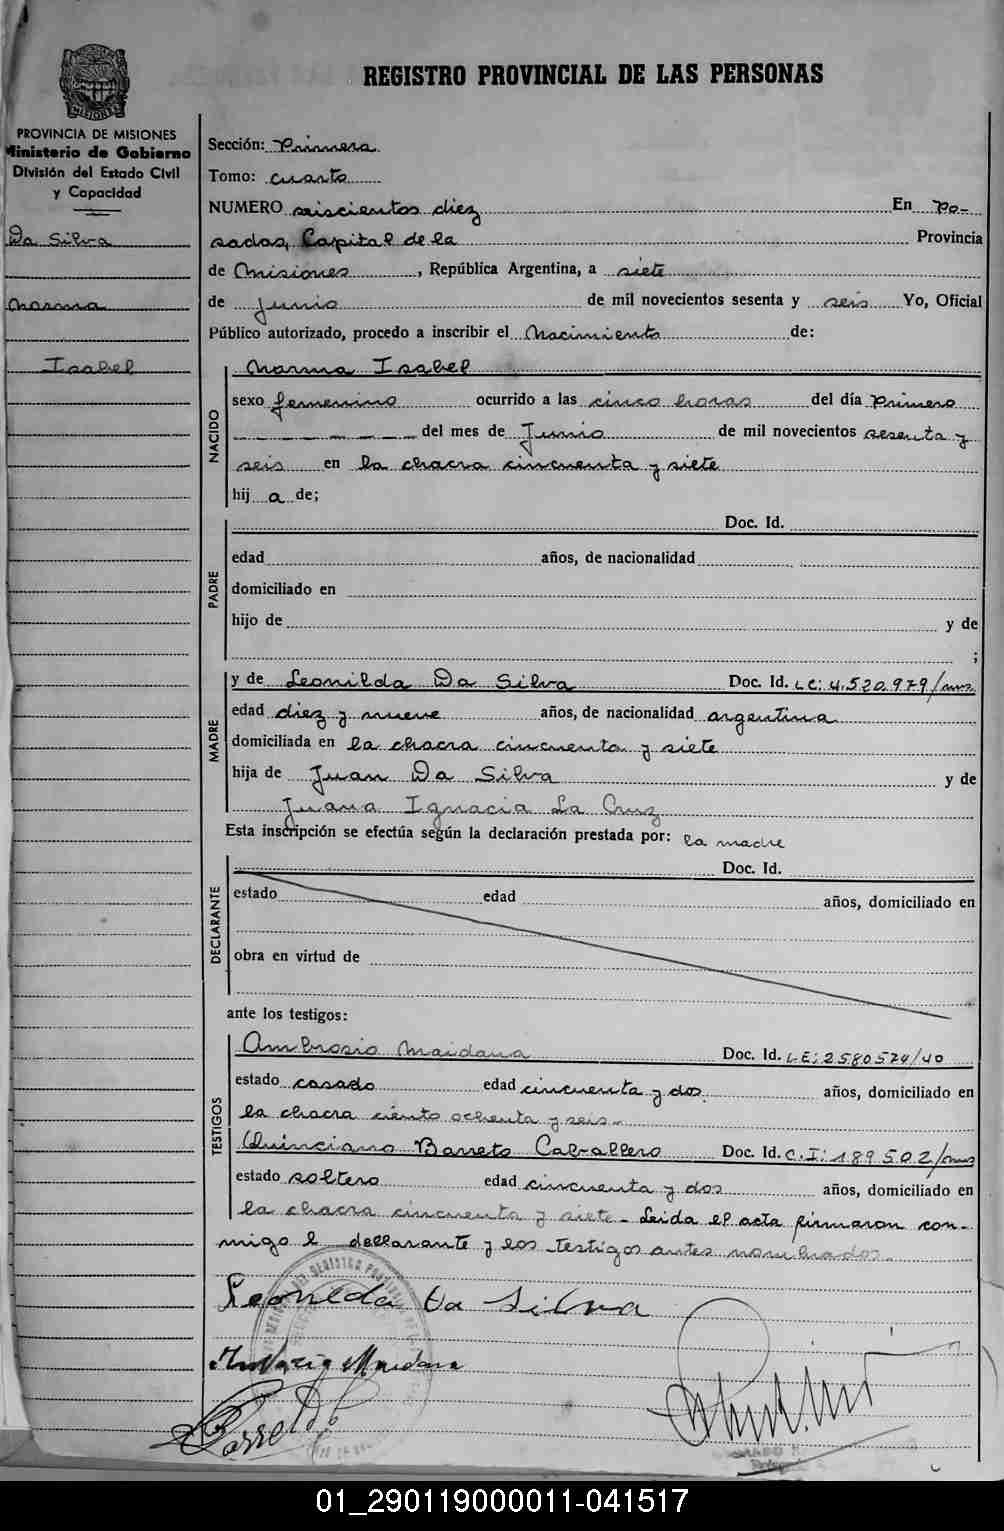 REGISTRO PROVINCIAL DE LAS PERSONAS
MISIONES
PROVINCIA DE MISIONES
Ministerio de Gobierno
División del Estado Civil
y Capacidad
Da Silva
Norma
Isabel
Sección: Primera
Tomo: cuarto
NUMERO seiscientos diez En Po-
sadas, Capital de la Provincia
de Misiones, República Argentina, a siete
de Junio de mil novecientos sesenta y seis Yo, Oficial
Público autorizado, procedo a inscribir el Nacimiento de:
NACIDO
Norma Isabel
sexo femenino ocurrido a las cinco horas del día Primero
del mes de Junio de mil novecientos sesenta y
seis en la chacra cincuenta y siete
hij a de;
PADRE
Doc. Id.
edad años, de nacionalidad
domiciliado en
hijo de y de
;
MADRE
y de Leonilda Da Silva Doc. Id. LC: 4.520.979/mns
edad diez y nueve años, de nacionalidad argentina
domiciliada en la chacra cincuenta y siete
hija de Juan Da Silva y de
Juana Ignacia La Cruz
Esta inscripción se efectúa según la declaración prestada por: la madre
DECLARANTE
Doc. Id.
estado edad años, domiciliado en
obra en virtud de
ante los testigos:
TESTIGOS
Ambrosio Maidana Doc. Id. L E: 2580574/40
estado casado edad cincuenta y dos años, domiciliado en
la chacra ciento ochenta y seis.-
Quinciano Barreto Caballero Doc. Id. C.I: 189502/mns
estado soltero edad cincuenta y dos años, domiciliado en
la chacra cincuenta y siete - Leida el acta firmaron con-
migo l declarante y los testigos antes nombrados.-
Leonilda Da Silva
Maidana
Barreto
01_290119000011-041517